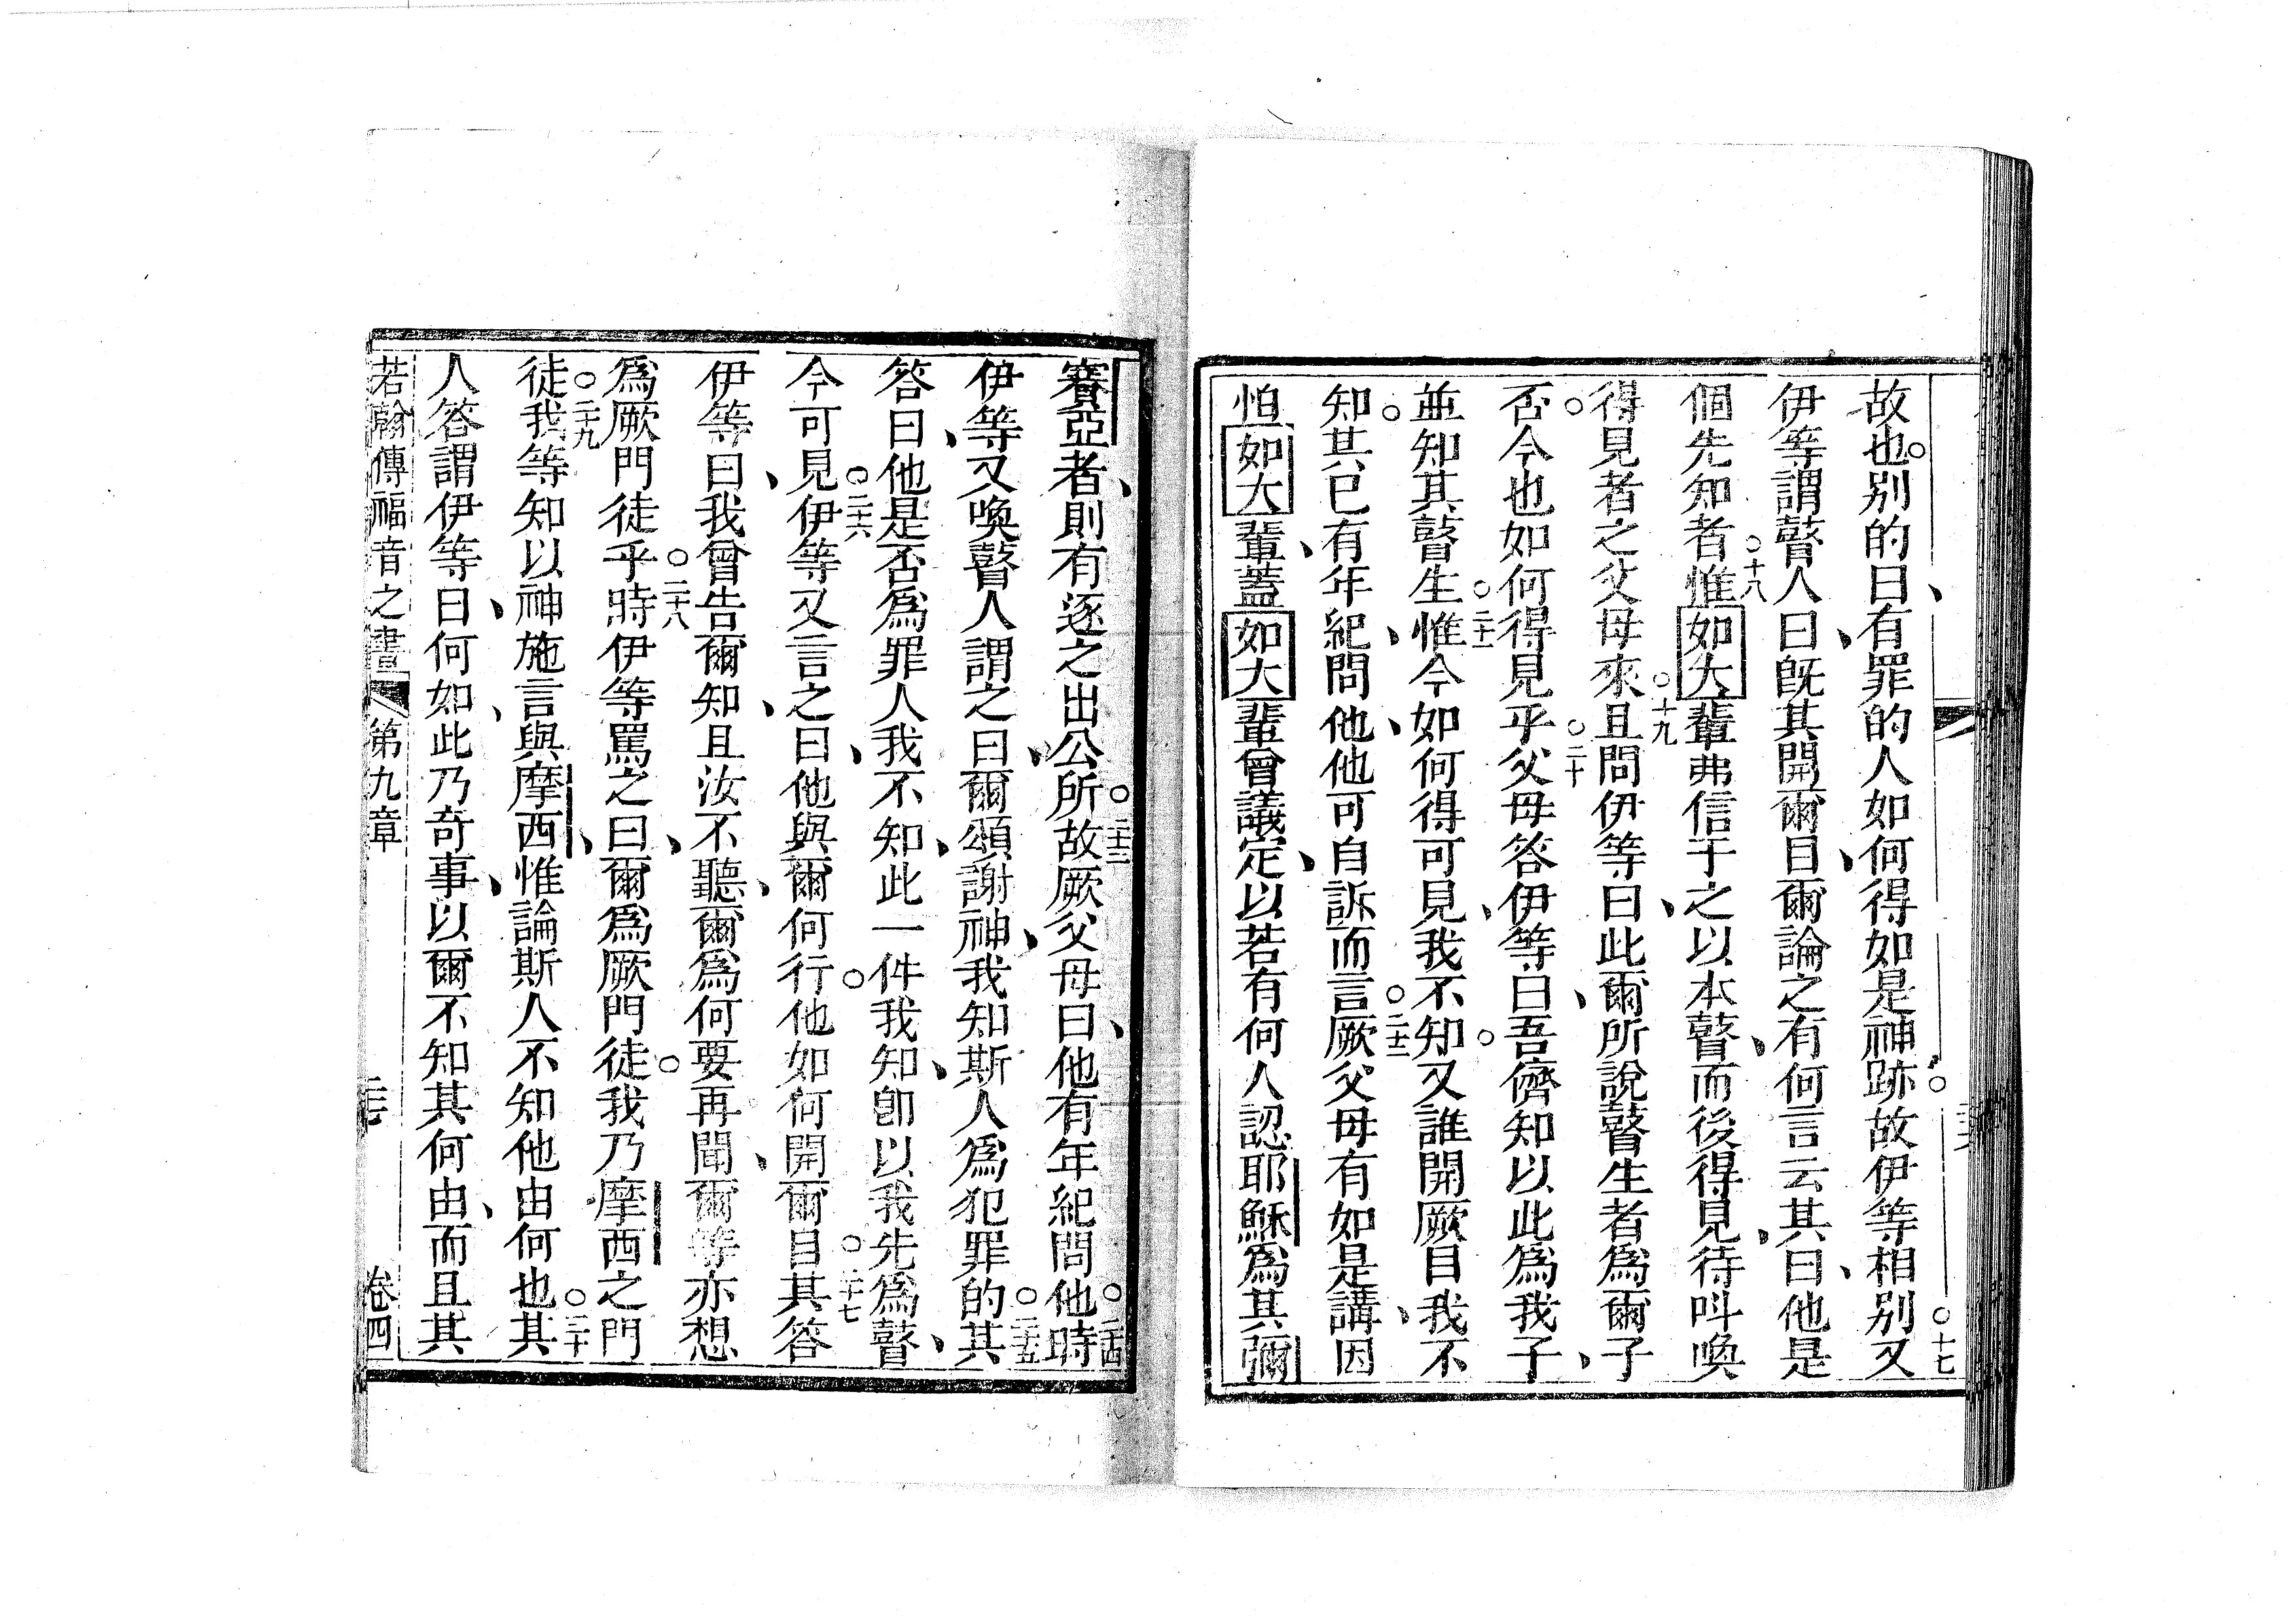 故也。別的曰、有罪的人如何得如是神跡。故伊等相別又
○十七
伊等謂瞽人曰、既其開爾目、爾論之有何言云其曰、他是
個先知者惟如大輩弗信于之以本瞽、而後得見、待呌喚
○十八
得見者之父母來且問伊等曰、此爾所說瞽生者爲爾子
○十九
否。今也如何得見乎父母答伊等曰、吾儕知以此爲我子、
○二十
並知其瞽生惟今如何得可見、我不知。又誰開厥目我不
○二十一
知。其已有年紀、問他、他可自訴而言厥父母有如是講、因
○二十二
怕如大輩、蓋如大輩曾議定、以若有何人認耶穌爲其彌
賽亞者、則有逐之出公所故厥父母曰、他有年紀問他。時
○二十三
○二十四
伊等又喚瞽人謂之曰、爾頌謝神、我知斯人爲犯罪的其
○二十五
答曰、他是否爲罪人我不知、此一件我知、卽以我先爲瞽、
今可見伊等又言之曰、他與爾何行。他如何開爾目其答
○二十六
○二十七
伊等曰、我曾告爾知、且汝不聽、爾爲何要再聞、爾等亦想
爲厥門徒乎時伊等罵之曰、爾爲厥門徒。我乃摩西之門
○二十八
徒我等知以神施言與摩西、惟論斯人不知他由何也其
○二十九
○三十
人答謂伊等曰、何如、此乃奇事、以爾不知其何由、而且其
若翰傳福音之書 第九章 卷四